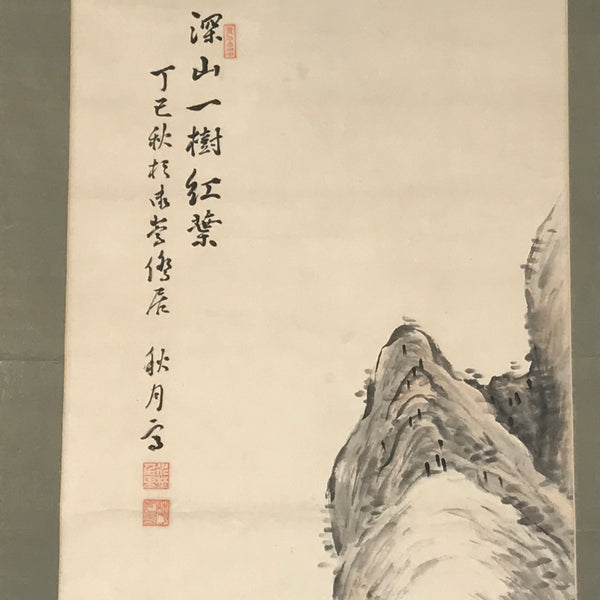 深山一樹紅葉
丁巳秋於
僑居 秋月写